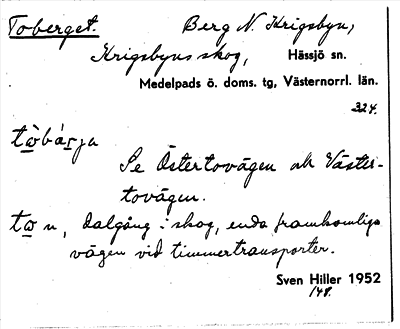 Toberget. Berg N. Krigsbyn,
Krigsbyns skog, Hässjö sn.
Medelpads ö. doms. tg, Västernorrl. län.
324.
tòbárja
Se Östertovägen och Väster-
tovägen.
to n, dalgång i skog, enda framkomliga
vägen vid timmertransporter.
Sven Hiller 1952
148.